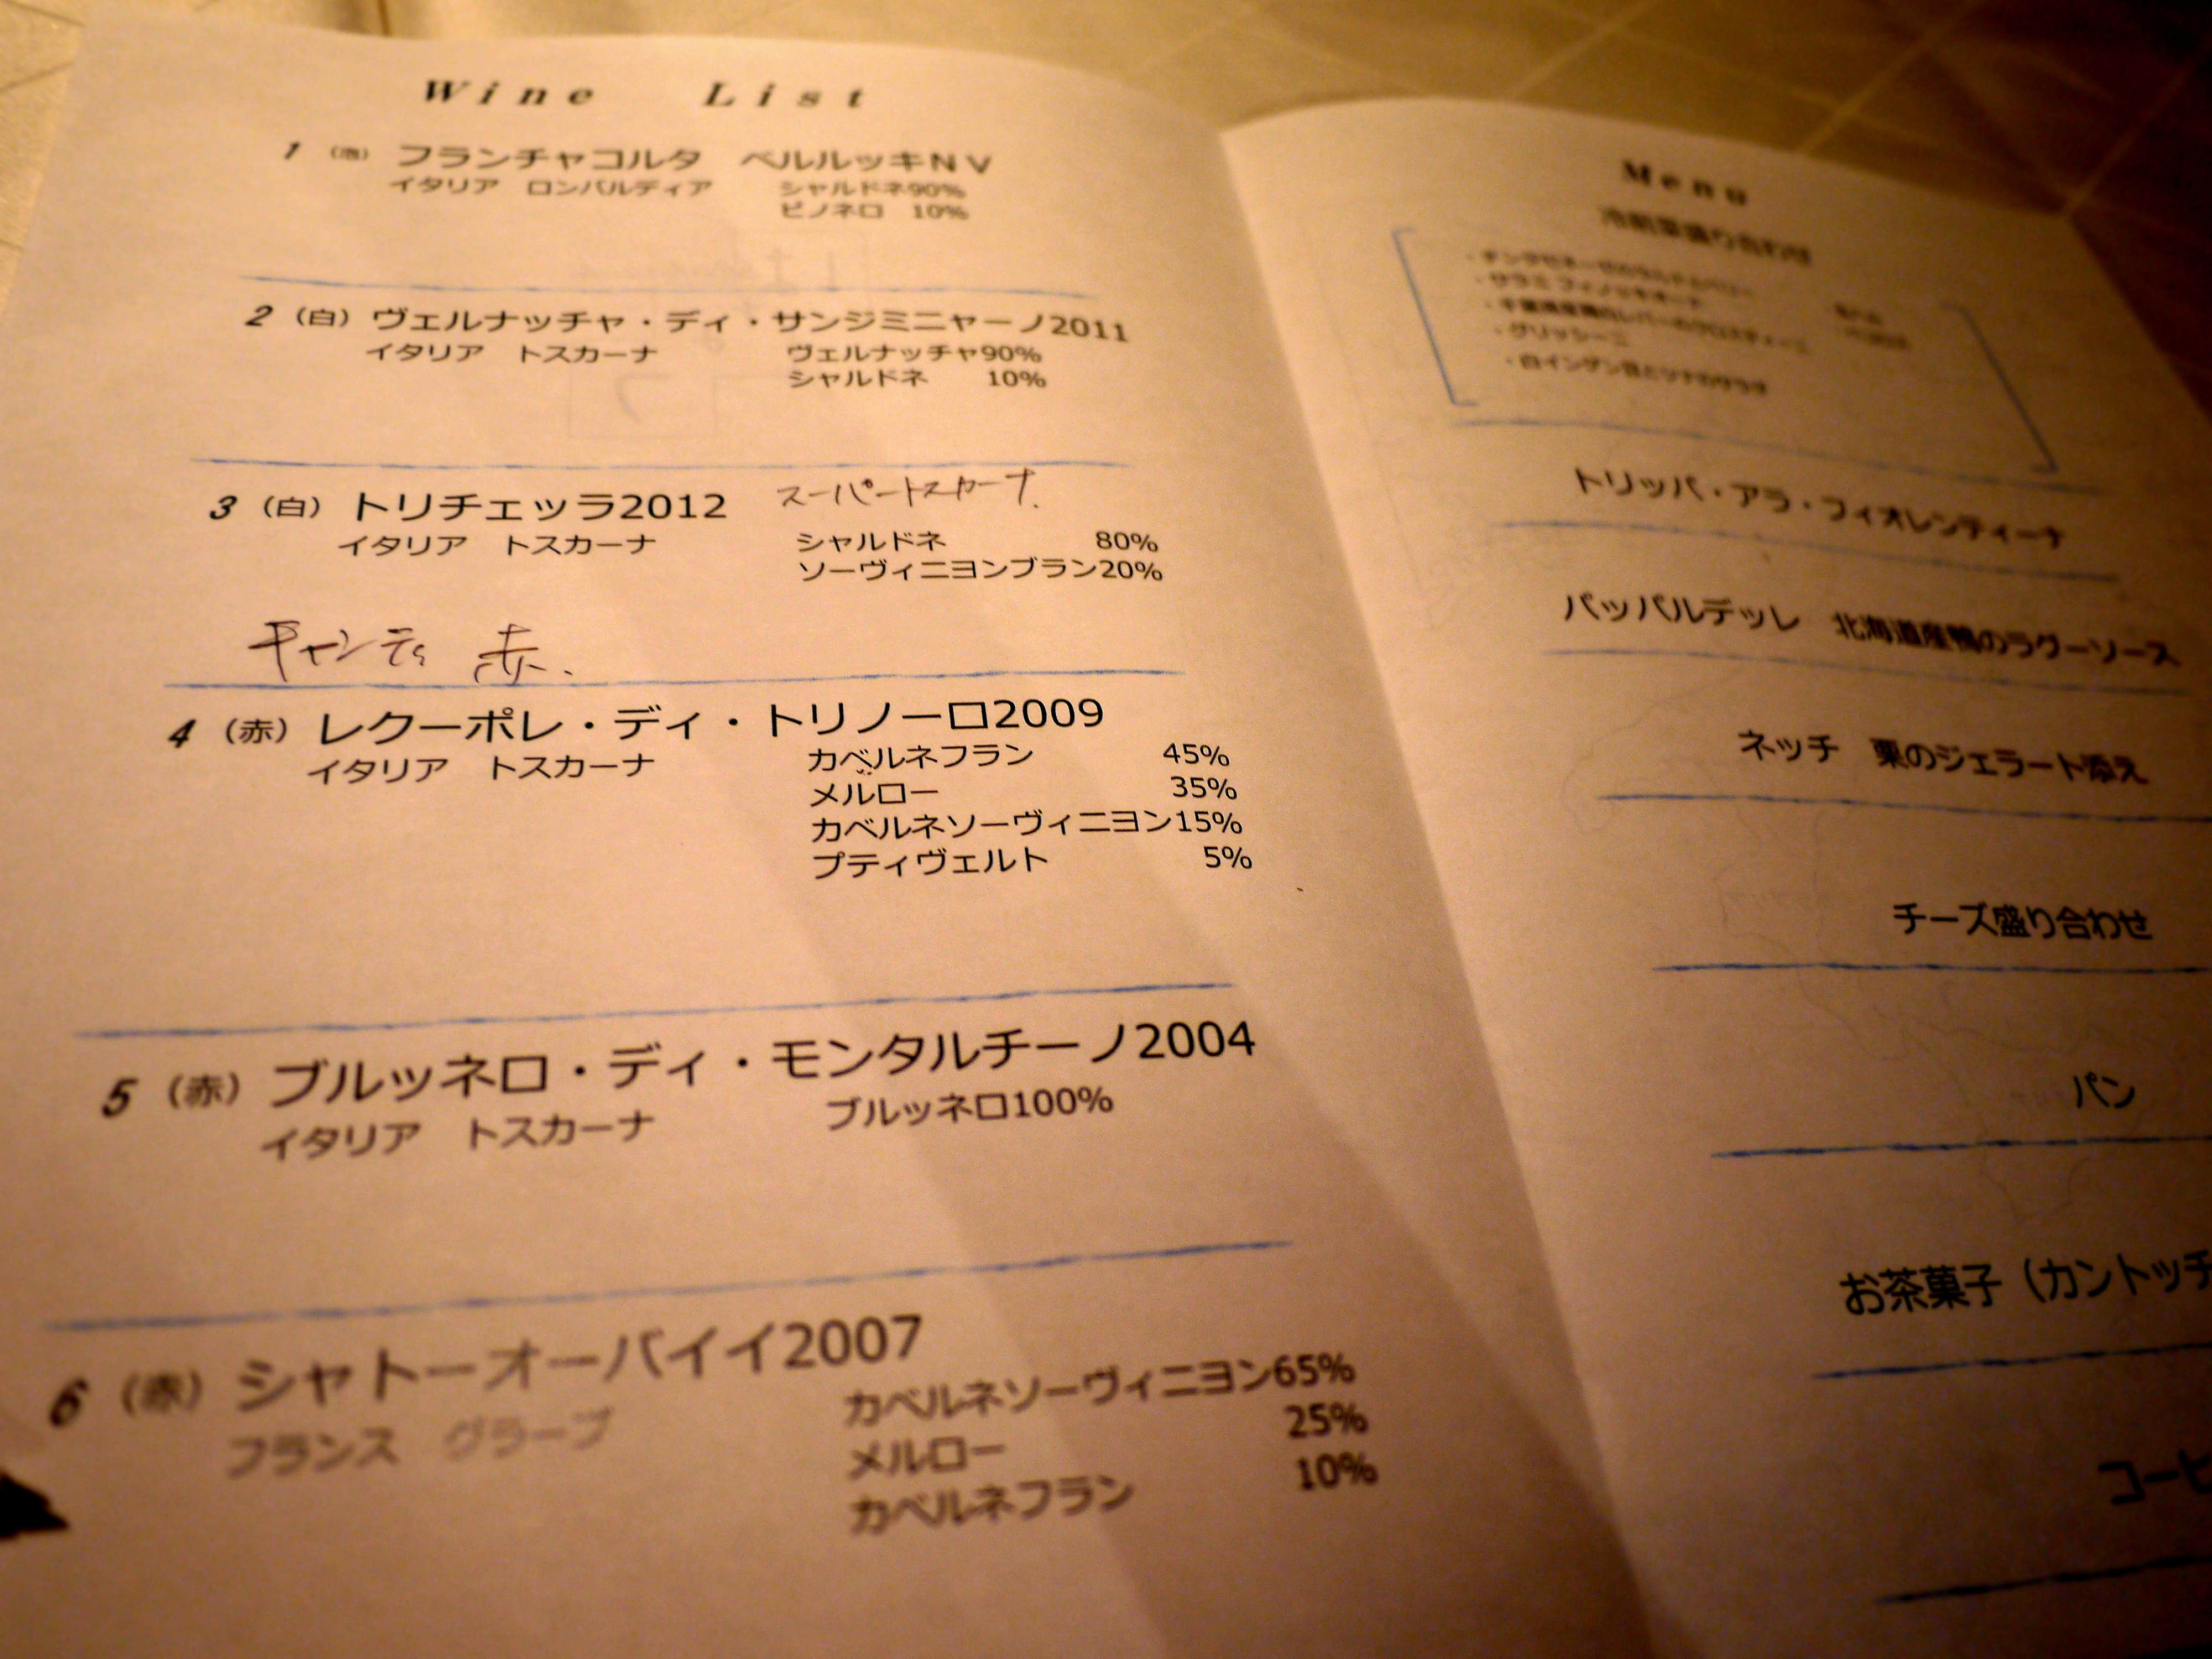 Wine List
1 (泡) フランチャコルタ ベルルッキNV
イタリア ロンバルディア シャルドネ90%
ピノネロ 10%
2 (白) ヴェルナッチャ・ディ・サンジミニャーノ2011
イタリア トスカーナ ヴェルナッチャ90%
シャルドネ 10%
3 (白) トリチェッラ2012 スーパートスカーナ.
イタリア トスカーナ シャルドネ 80%
ソーヴィニヨンブラン20%
キャンティ 赤.
4 (赤) レクーポレ・ディ・トリノーロ2009
イタリア トスカーナ カベルネフラン 45%
メルロー 35%
カベルネソーヴィニヨン15%
プティヴェルト 5%
5 (赤) ブルッネロ・ディ・モンタルチーノ2004
イタリア トスカーナ ブルッネロ100%
6 (赤) シャトーオーバイイ2007
フランス グラーブ カベルネソーヴィニヨン65%
メルロー 25%
カベルネフラン 10%
Menu
冷前菜盛り合わせ
・サラミ フィノッキオーナ
・グリッシーニ
・白インゲン豆とツナのサラダ
トリッパ・アラ・フィオレンティーナ
パッパルデッレ 北海道産鴨のラグーソース
ネッチ 栗のジェラート添え
チーズ盛り合わせ
パン
お茶菓子（カントッチ
コーヒ